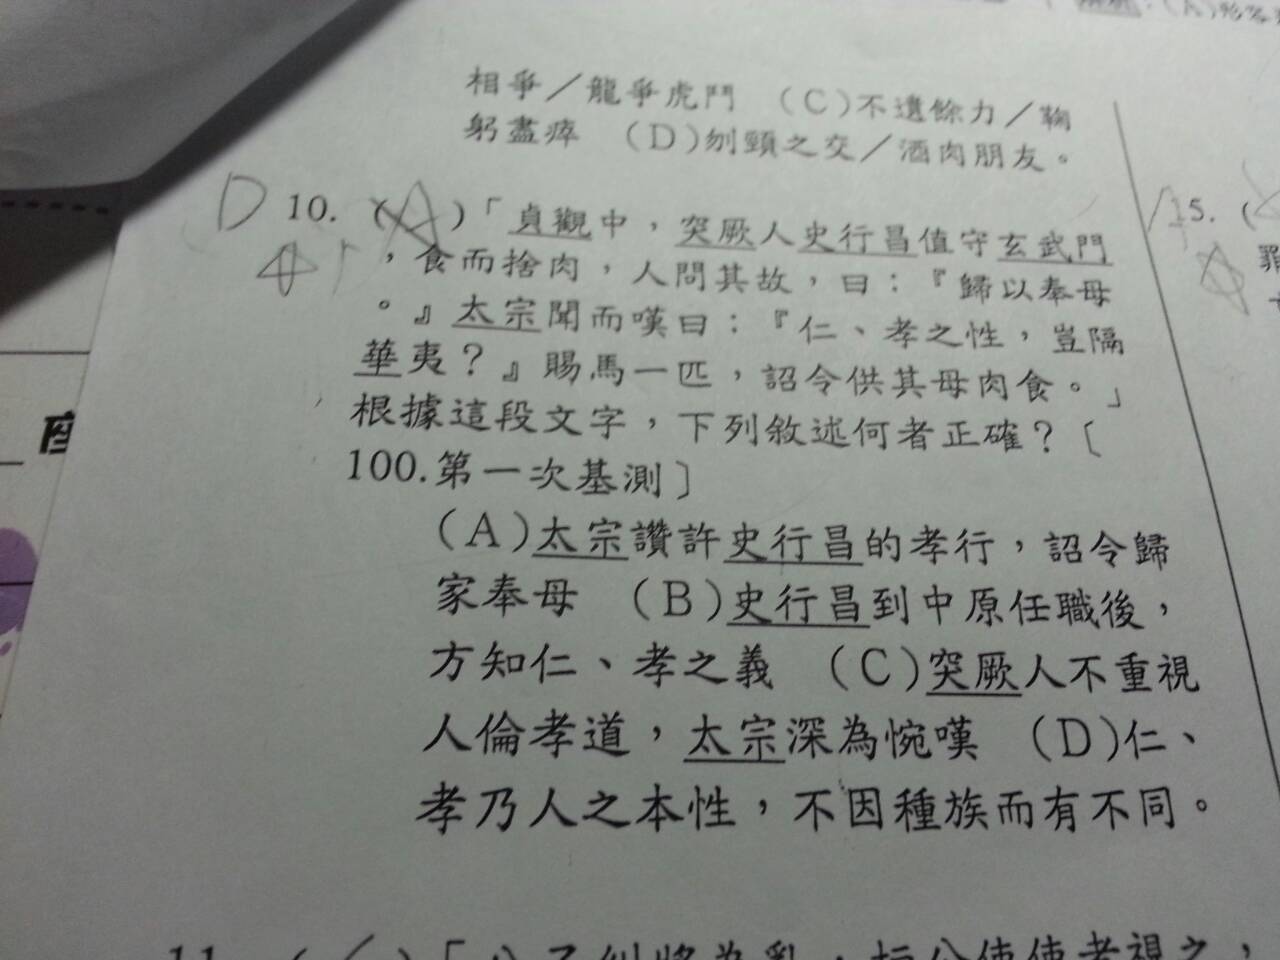 相爭／龍爭虎鬥　(C)不遺餘力／鞠
躬盡瘁　(D)刎頸之交／酒肉朋友。
D 10.（A）「貞觀中，突厥人史行昌值守玄武門
，食而捨肉，人問其故，曰：『歸以奉母
。』太宗聞而嘆曰：『仁、孝之性，豈隔
華夷？』賜馬一匹，詔令供其母肉食。」
根據這段文字，下列敘述何者正確？〔
100.第一次基測〕
(A)太宗讚許史行昌的孝行，詔令歸
家奉母　(B)史行昌到中原任職後，
方知仁、孝之義　(C)突厥人不重視
人倫孝道，太宗深為惋嘆　(D)仁、
孝乃人之本性，不因種族而有不同。
5.（
罪